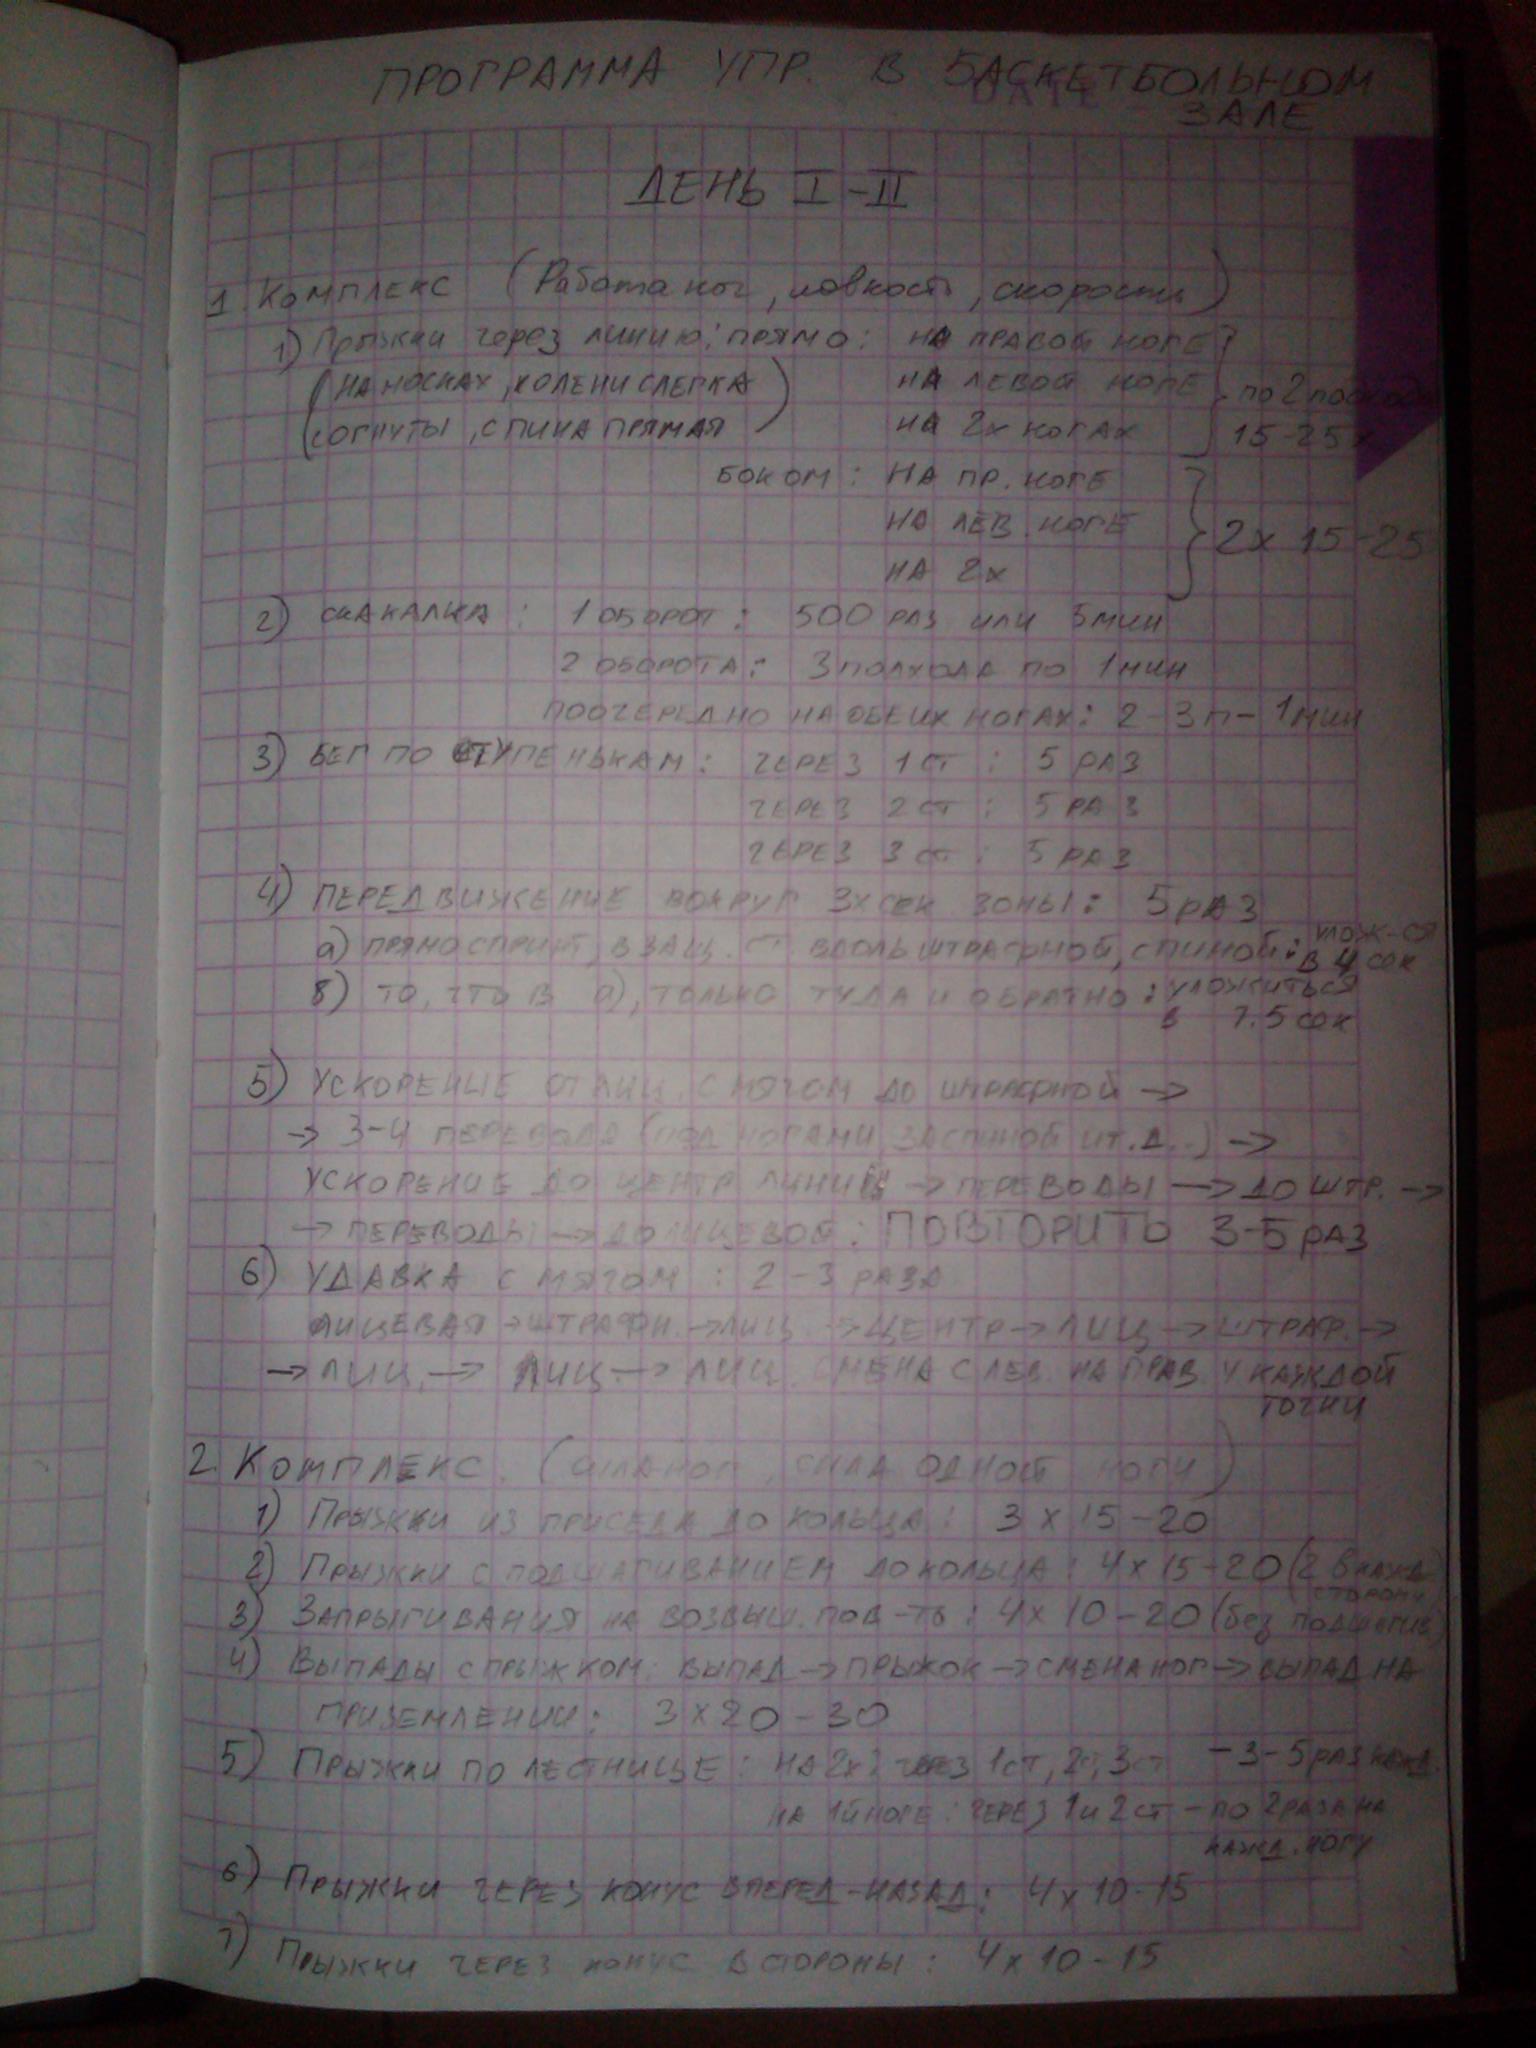 ПРОГРАММА УПР. В БАСКЕТБОЛЬНОМ
ЗАЛЕ
DATE
ДЕНЬ I-II
1. Комплекс (Работа ног, ловкость, скорость)
1) Прыжки через линию: прямо: на правой ноге
(на носках, колени слегка на левой ноге по 2 подхода
согнуты, спина прямая) на 2х ногах 15-25х
боком: на пр. ноге
на лев. ноге 2х 15-25
на 2х
2) скакалка: 1 оборот: 500 раз или 5 мин
2 оборота: 3 подхода по 1 мин
поочередно на обеих ногах: 2-3п-1мин
3) Бег по ступенькам: через 1 ст: 5 раз
через 2 ст: 5 раз
через 3 ст: 5 раз
4) передвижение вокруг 3х сек зоны: 5 раз
а) прямо спринт, в защ. ст. вдоль штрафной, спиной: улож-ся
в 4 сек
б) то, что в а), только туда и обратно: уложиться
в 7.5 сек
5) Ускорение от лиц. с мячом до штрафной →
→ 3-4 перевода (под ногами, за спиной и т.д..) →
ускорение до центр линии → переводы → до штр. →
→ переводы → до лицевой: ПОВТОРИТЬ 3-5 раз
6) Удавка с мячом: 2-3 раза
лицевая → штрафн. → лиц. → центр → лиц → штраф. →
→ лиц. → лиц. → лиц. смена с лев. на прав. у каждой
точки
2. Комплекс. (сила ног, сила одной ноги)
1) Прыжки из приседа до кольца: 3 х 15-20
2) Прыжки с подшагиванием до кольца: 4х 15-20 (2 в кажд
сторону)
3) Запрыгивания на возвыш. пов-ть: 4х 10-20 (без подшагив)
4) Выпады с прыжком: выпад → прыжок → смена ног → выпад на
приземлении: 3 х 20-30
5) Прыжки по лестнице: на 2х: через 1ст, 2ст, 3ст - 3-5 раз кажд.
на 1й ноге: через 1 и 2 ст - по 2 раза на
кажд. ногу
6) Прыжки через конус вперед-назад: 4х 10-15
7) Прыжки через конус в стороны: 4х 10-15